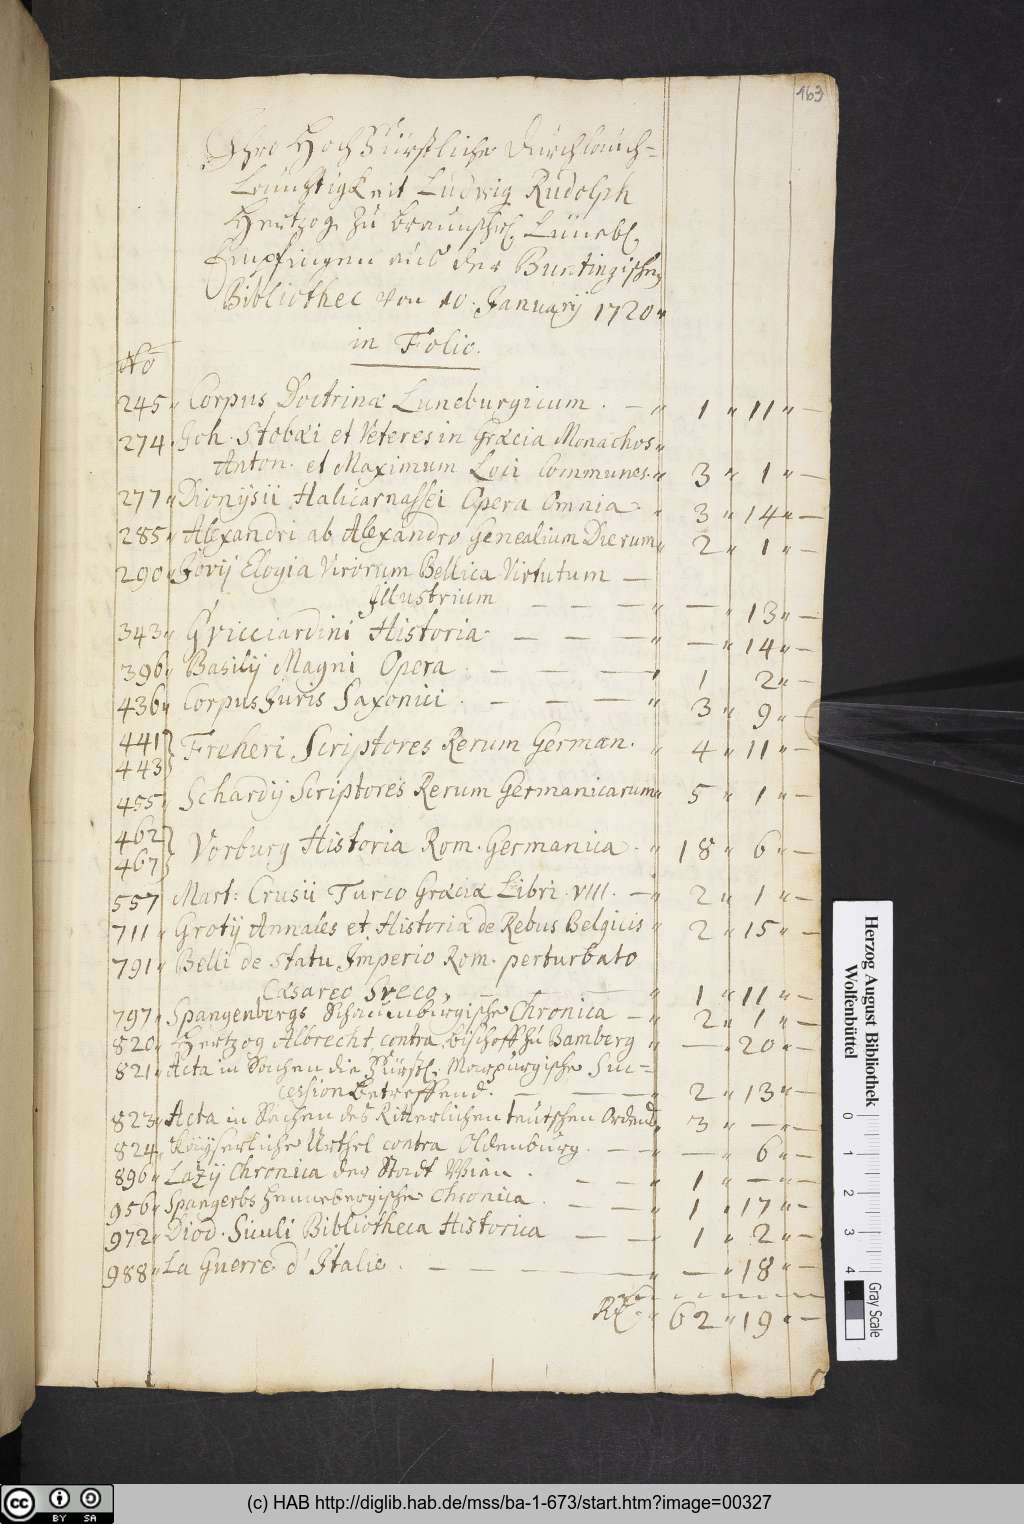 163
Ihro HochFürstliche Durchlauch=
Leuchtigkeit Ludwig Rudolph
Hertzog zu braunschw. Lüneb.
Empfingen aus der Buntingischen
Bibliothec von 10. Januarij 1720
in Folio.
No
245 " Corpus Doctrinæ Luneburgicum . — " 1 " 11 " —
274 . Joh. Stobæi et Veteres in Græcia Monachos "
Anton. et Maximum Loci Communes. " 3 " 1 " —
277 " Dionysii Halicarnassei Opera Omnia " 3 " 14 " —
285 " Alexandri ab Alexandro Genealium Dierum " 2 " 1 " —
290 " Jovij Elogia Virorum Bellica Virtutum —
Illustrium — — — " — " 13 " —
343 " Gvicciardini Historia — — — " — " 14 " —
396 " Basilij Magni Opera . — — — " 1 2 " —
436 " Corpus Juris Saxonici . — — — " 3 " 9 " —
441 }
443 } Freheri Scriptores Rerum German. " 4 " 11 " —
455 " Schardij Scriptores Rerum Germanicarum " 5 " 1 " —
462 }
467 } Vorburg Historia Rom. Germanica . " 18 " 6 " —
557 Mart: Crusii Turco Græciæ Libri VIII. — " 2 " 1 " —
711 " Grotij Annales et Historiæ de Rebus Belgicis " 2 " 15 " —
791 " Belli de statu Imperio Rom. perturbato
Cæsareo Sveco, — — — " 1 " 11 " —
797 " Spangenbergs Schaumburgische Chronica — " 2 " 1 " —
820 " Hertzog Albrecht contra bischoff zu Bamberg " — " 20 " —
821 " Acta in Sachen die Fürstl. Marpurgische Suc=
cession betreffend. — — — " 2 " 13 " —
823 " Acta in Sachen des Ritterlichen teutschen Ordens " 3 " — " —
824 " Käyserliche Urthel contra Oldenburg . — — " — " 6 " —
896 " Lazij Chronica der Stadt Wien . — — " 1 " — " —
956 " Spangerbs Hennebergische Chronica . — — " 1 " 17 " —
972 " Diod. Siculi Bibliotheca Historica — — " 1 " 2 " —
988 " La Guerre d'Italie . — — — " — " 18 " —
" 62 " 19 " —
Herzog August Bibliothek
Wolfenbüttel
0 1 2 3 4
Gray Scale
cc BY SA
(c) HAB http://diglib.hab.de/mss/ba-1-673/start.htm?image=00327